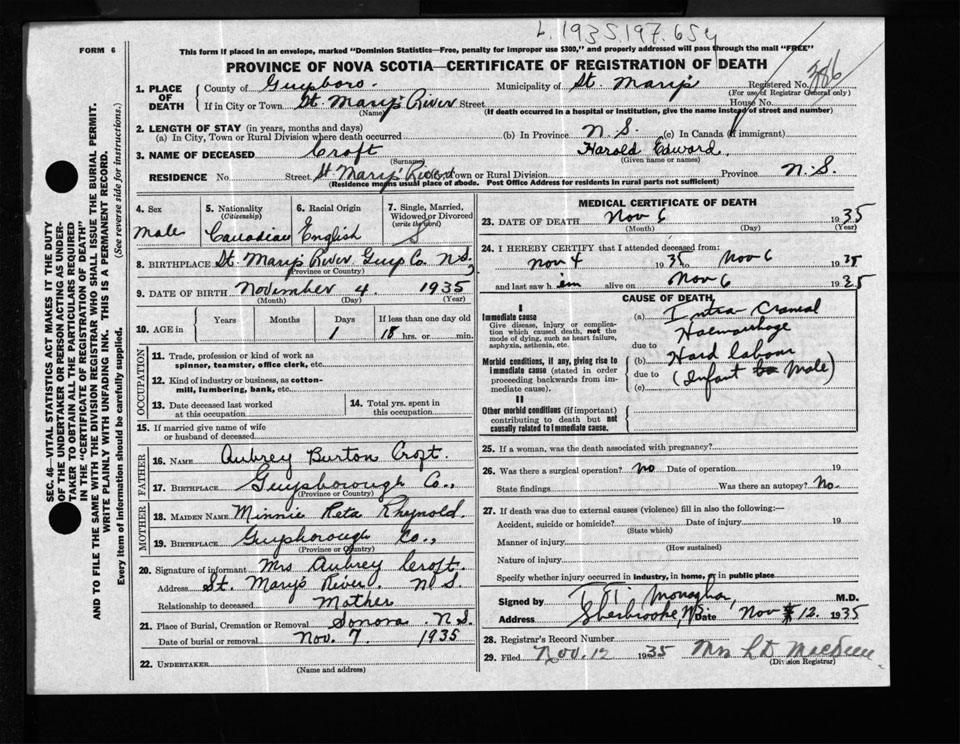 L. 1935.197.654
FORM 6
This form if placed in an envelope, marked "Dominion Statistics—Free, penalty for improper use $300," and properly addressed will pass through the mail "FREE"
PROVINCE OF NOVA SCOTIA—CERTIFICATE OF REGISTRATION OF DEATH
1. PLACE OF DEATH
County of Guysboro. Municipality of St. Mary's Registered No. 386
(For use of Registrar General only)
If in City or Town St. Mary's River Street House No.
(Name) (If death occurred in a hospital or institution, give the name instead of street and number)
2. LENGTH OF STAY (in years, months and days)
(a) In City, Town or Rural Division where death occurred (b) In Province N.S. (c) In Canada (if immigrant)
3. NAME OF DECEASED Croft Harold Edward
(Surname) (Given name or names)
RESIDENCE No Street St Mary's River Town or Rural Division Province N.S.
(Residence means usual place of abode. Post Office Address for residents in rural parts not sufficient)
4. Sex
Male
5. Nationality
(Citizenship)
Canadian
6. Racial Origin
English
7. Single, Married, Widowed or Divorced
(write the word)
S
8. BIRTHPLACE St. Mary's River Guys Co. N.S.
(Province or Country)
9. DATE OF BIRTH November 4. 1935
(Month) (Day) (Year)
10. AGE in
Years Months Days If less than one day old
1 18 hrs. or min.
OCCUPATION
11. Trade, profession or kind of work as spinner, teamster, office clerk, etc.
12. Kind of industry or business, as cotton-mill, lumbering, bank, etc.
13. Date deceased last worked at this occupation
14. Total yrs. spent in this occupation
15. If married give name of wife or husband of deceased
FATHER
16. NAME Aubrey Burton Croft.
17. BIRTHPLACE Guysborough Co.,
(Province or Country)
MOTHER
18. MAIDEN NAME Minnie Reta Rhynold.
19. BIRTHPLACE Guysborough Co.,
(Province or Country)
20. Signature of informant Mrs Aubrey Croft.
Address St. Mary's River. N S.
Relationship to deceased Mother
21. Place of Burial, Cremation or Removal Sonora. N S.
Date of burial or removal Nov. 7 1935
22. UNDERTAKER
(Name and address)
MEDICAL CERTIFICATE OF DEATH
23. DATE OF DEATH Nov 6 1935
(Month) (Day) (Year)
24. I HEREBY CERTIFY that I attended deceased from:
Nov 4 1935 to Nov 6 1935
and last saw h im alive on Nov 6 1935
CAUSE OF DEATH
I
Immediate cause
Give disease, injury or complication which caused death, not the mode of dying, such as heart failure, asphyxia, asthenia, etc.
(a) Intra-Cranial
Haemorrhage
due to
Morbid conditions, if any, giving rise to immediate cause (stated in order proceeding backwards from immediate cause).
(b) Hard labour
due to (Infant Male)
(c)
II
Other morbid conditions (if important) contributing to death but not causally related to immediate cause.
25. If a woman, was the death associated with pregnancy?
26. Was there a surgical operation? No Date of operation 19
State findings Was there an autopsy? No.
27. If death was due to external causes (violence) fill in also the following:—
Accident, suicide or homicide? Date of injury 19
(State which)
Manner of injury
(How sustained)
Nature of injury
Specify whether injury occurred in industry, in home, or in public place
Signed by Monaghan M.D.
Address Sherbrooke, NS Date Nov 12. 1935
28. Registrar's Record Number
29. Filed Nov. 12 1935 Mrs
(Division Registrar)
SEC. 46—VITAL STATISTICS ACT MAKES IT THE DUTY
OF THE UNDERTAKER OR PERSON ACTING AS UNDER-
TAKER TO OBTAIN ALL THE PARTICULARS REQUIRED
IN THE "CERTIFICATE OF REGISTRATION OF DEATH"
AND TO FILE THE SAME WITH THE DIVISION REGISTRAR WHO SHALL ISSUE THE BURIAL PERMIT.
WRITE PLAINLY WITH UNFADING INK. THIS IS A PERMANENT RECORD.
Every item of information should be carefully supplied. (See reverse side for instructions.)